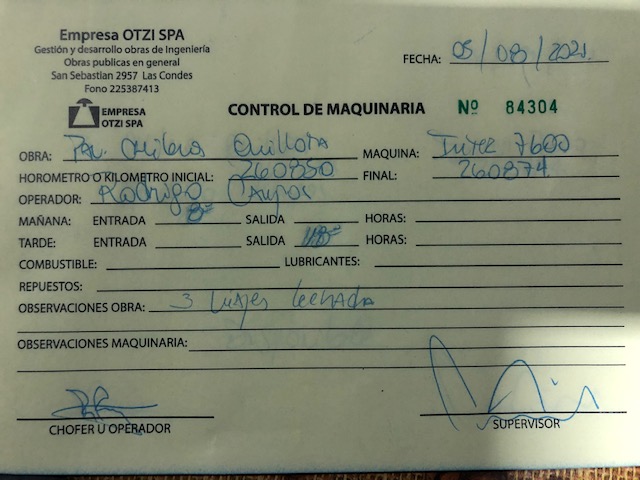 Empresa OTZI SPA
Gestión y desarrollo obras de Ingeniería
Obras publicas en general
San Sebastian 2957 Las Condes
Fono 225387413
FECHA: 05/08/2021
EMPRESA
OTZI SPA
CONTROL DE MAQUINARIA Nº 84304
OBRA: Quillota MAQUINA: Inter 7600
HOROMETRO O KILOMETRO INICIAL: 260850 FINAL: 260874
OPERADOR: Rodrigo Campos
MAÑANA: ENTRADA 8 SALIDA HORAS:
TARDE: ENTRADA SALIDA 18 HORAS:
COMBUSTIBLE: LUBRICANTES:
REPUESTOS:
OBSERVACIONES OBRA: 3 viajes lechada
OBSERVACIONES MAQUINARIA:
CHOFER U OPERADOR SUPERVISOR